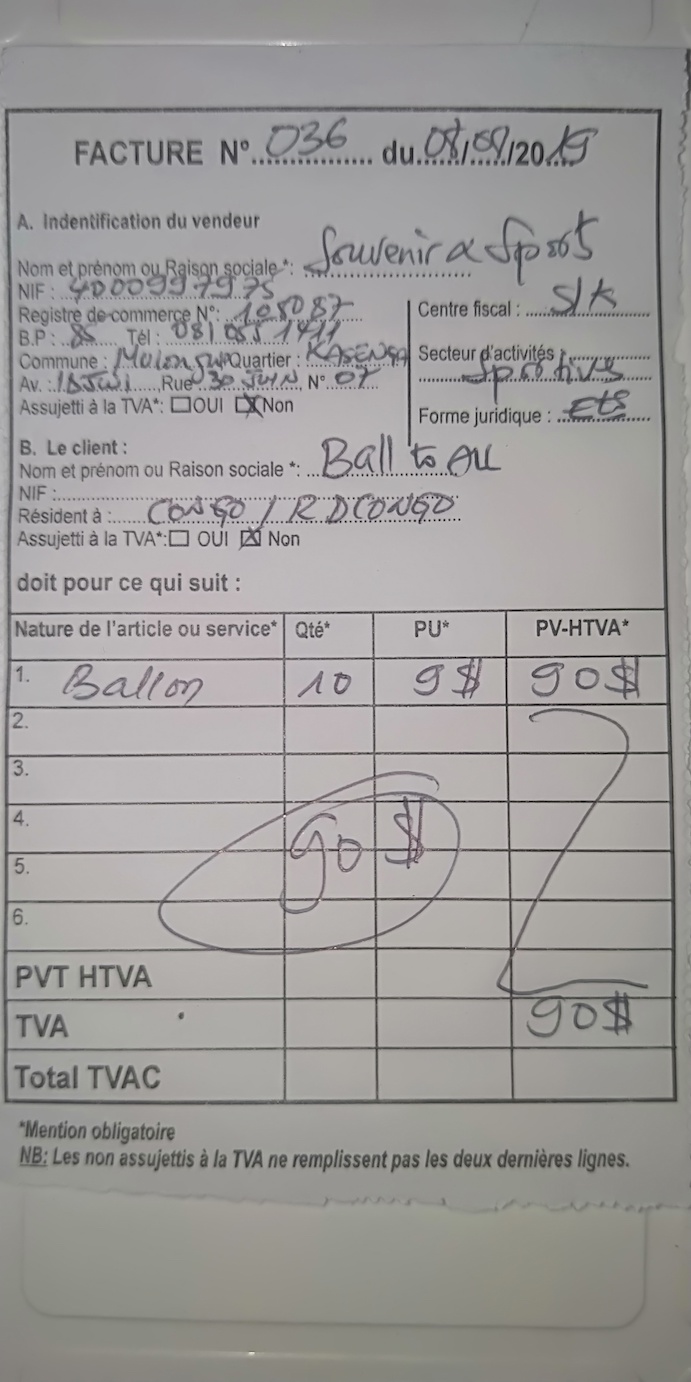 FACTURE N° 036 du 08/09/2019
A. Indentification du vendeur
Nom et prénom ou Raison sociale*: Souvenir α Sport
NIF : 4000997975
Registre de commerce N°: 108087
Centre fiscal : S/K
B.P : 85 Tél : 081 085 1411
Commune : Quartier : KASENGA
Secteur d'activités : Sportives
Av. : Rue 30 JUIN N° 07
Assujetti à la TVA*: OUI Non
Forme juridique : Ets
B. Le client :
Nom et prénom ou Raison sociale *: Ball to All
NIF :
Résident à : CONGO / RDCONGO
Assujetti à la TVA*: OUI Non
doit pour ce qui suit :
Nature de l'article ou service* Qté* PU* PV-HTVA*
1. Ballon 10 9$ 90$
2.
3.
4.
90 $
5.
6.
PVT HTVA
TVA 90$
Total TVAC
*Mention obligatoire
NB: Les non assujettis à la TVA ne remplissent pas les deux dernières lignes.